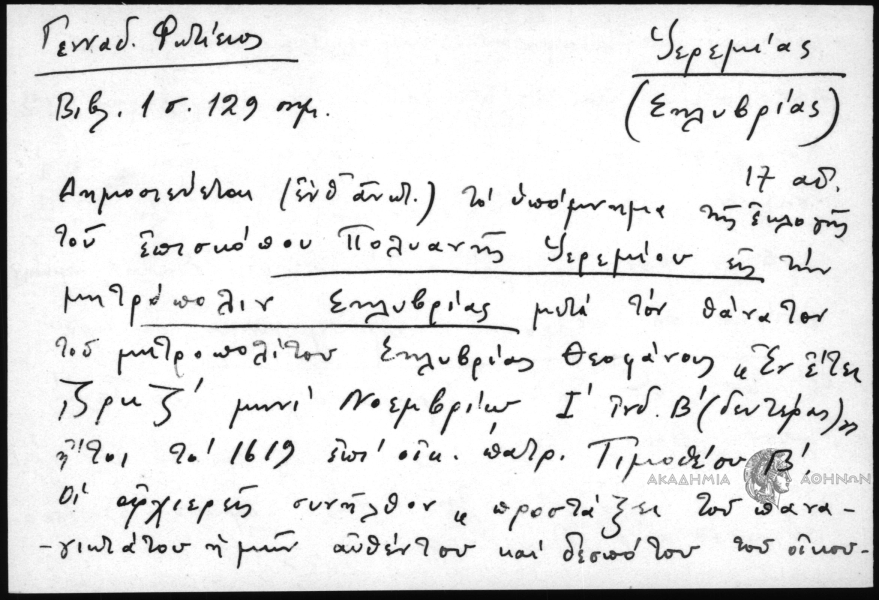 Γενναδ. Φωτίειος
Ἱερεμίας
Βιβλ. 1 σ. 129 σημ.
(Σηλυβρίας)
17 αἰ.
Δημοσιεύεται (ἔνθ' ἀνωτ.) τό ὑπόμνημα τῆς ἐκλογῆς
τοῦ ἐπισκόπου Πολυανῆς Ἱερεμίου εἰς τήν
μητρόπολιν Σηλυβρίας μετά τόν θάνατον
τοῦ μητροπολίτου Σηλυβρίας Θεοφάνους "Ἐν ἔτει
͵ζρκζ' μηνί Νοεμβρίῳ Ι' ἰνδ. Β' (δευτέρας)"
ἤτοι τό 1619 ἐπί οἰκ. πατρ. Τιμοθέου Β'.
Οἱ ἀρχιερεῖς συνῆλθον "προστάξει τοῦ πανα-
-γιωτάτου ἡμῶν αὐθέντου καί δεσπότου τοῦ οἰκου-
ΑΚΑΔΗΜΙΑ ΑΘΗΝΩΝ